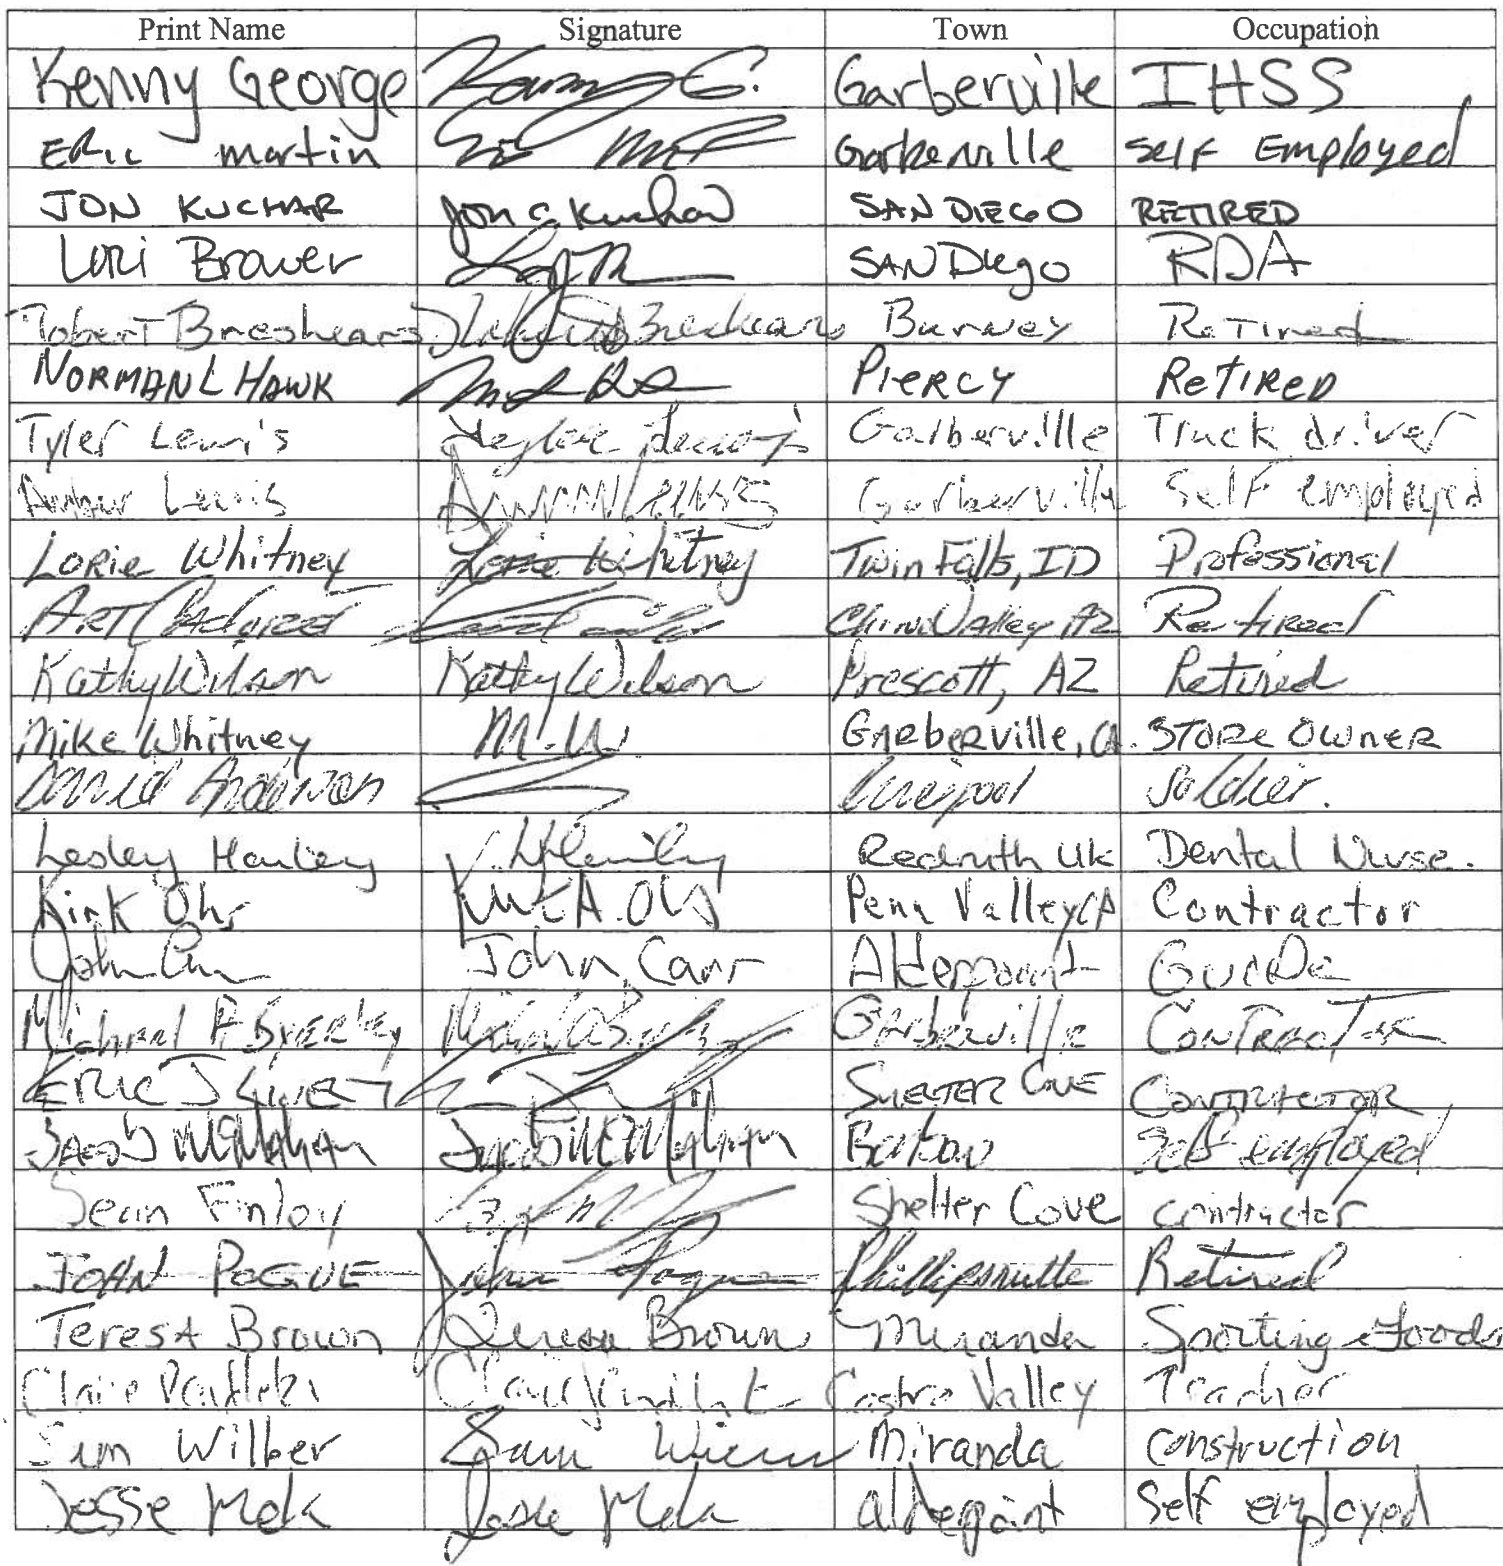 Print Name Signature Town Occupation
Kenny George Kenny G. Garberville IHSS
ERic martin Garberville Self Employed
JON KUCHAR Jon C Kuchar SAN DIEGO RETIRED
Lori Brower SAN Diego RDA
Robert Breshears Breshears Burney Retired
NORMAN L HAWK PIERCY RETIRED
Tyler Lewis Tyler Lewis Garberville Truck driver
Amber Lewis Garberville Self employed
LORIE Whitney Lorie Whitney Twin Falls, ID Professional
ART Chino Valley AZ Retired
Kathy Wilson Kathy Wilson Prescott, AZ Retired
Mike Whitney M.W. GARBERVille, CA. STORE OWNER
David Anderson Liverpool Soldier.
Lesley Redruth UK Dental Nurse.
Kirk Ohr Kirk A. Ohr Penn Valley CA Contractor
John Carr John Carr Alderpoint Guide
Michael A Byerley Garberville Contractor
ERIC J SHELTER COVE CONTRACTOR
Jacob McMahan Jacob McMahan self employed
Sean Finley Shelter Cove contractor
JOHN POGUE John Pogue Phillipsville Retired
Teresa Brown Teresa Brown Miranda Sporting Goods
Claire Castro Valley Teacher
Sam Wilber Sam Miranda construction
Jesse Jesse alderpoint Self employed